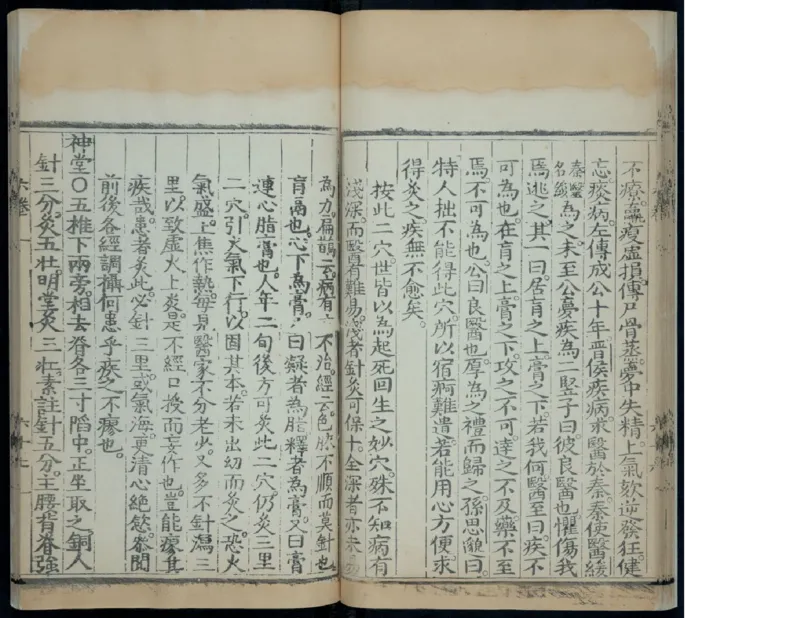 不療羸瘦虛損傳尸骨蒸夢中失精上氣欬逆發狂健
忘痰病左傳成公十年晉侯疾病求醫於秦秦使醫緩
秦醫名緩為之未至公夢疾為二豎子曰彼良醫也懼傷我
焉逃之其一曰居肓之上膏之下若我何醫至曰疾不
可為也在肓之上膏之下攻之不可達之不及藥不至
焉不可為也公曰良醫也厚為之禮而歸之孫思邈曰
特人拙不能得此穴所以宿痾難遣若能用心方便求
得灸之疾無不愈矣
按此二穴世皆以為起死回生之妙穴殊不知病有
淺深而醫有難易淺者針灸可保十全深者亦未
為力扁鵲云病有 不治經云色脉不順而莫針也
肓鬲也心下為膏 曰凝者為脂釋者為膏又曰膏
連心脂膏也人年二旬後方可灸此二穴仍灸三里
二穴引火氣下行以固其本若未出幼而灸之恐火
氣盛上焦作熱每見醫家不分老少又多不針瀉三
里以致虛火上炎是不經口授而妄作也豈能瘳其
疾哉患者灸此必針三里或氣海更清心絕慾叅閱
前後各經調攝何患乎疾之不瘳也
神堂〇五椎下兩旁相去脊各三寸陷中正坐取之銅人
針三分灸五壯明堂灸三壯素註針五分主腰背脊強
六卷